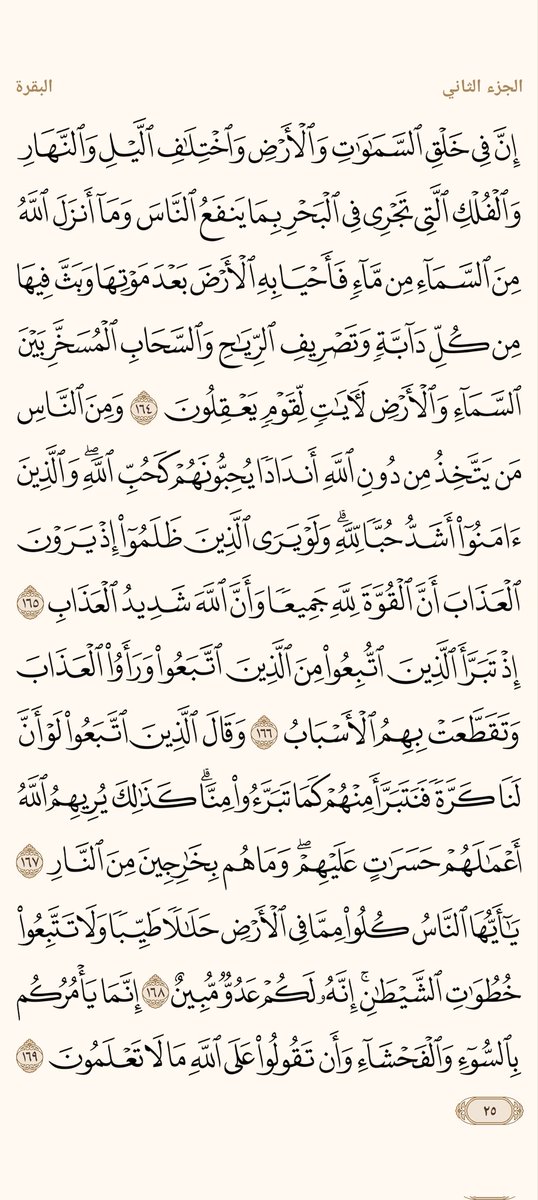 الجزء الثاني
البقرة
إِنَّ فِي خَلْقِ ٱلسَّمَٰوَٰتِ وَٱلْأَرْضِ وَٱخْتِلَٰفِ ٱلَّيْلِ وَٱلنَّهَارِ
وَٱلْفُلْكِ ٱلَّتِي تَجْرِي فِي ٱلْبَحْرِ بِمَا يَنفَعُ ٱلنَّاسَ وَمَآ أَنزَلَ ٱللَّهُ
مِنَ ٱلسَّمَآءِ مِن مَّآءٍ فَأَحْيَا بِهِ ٱلْأَرْضَ بَعْدَ مَوْتِهَا وَبَثَّ فِيهَا
مِن كُلِّ دَآبَّةٍ وَتَصْرِيفِ ٱلرِّيَٰحِ وَٱلسَّحَابِ ٱلْمُسَخَّرِ بَيْنَ
ٱلسَّمَآءِ وَٱلْأَرْضِ لَءَايَٰتٍ لِّقَوْمٍ يَعْقِلُونَ ١٦٤ وَمِنَ ٱلنَّاسِ
مَن يَتَّخِذُ مِن دُونِ ٱللَّهِ أَندَادًا يُحِبُّونَهُمْ كَحُبِّ ٱللَّهِۖ وَٱلَّذِينَ
ءَامَنُوٓا۟ أَشَدُّ حُبًّا لِّلَّهِۗ وَلَوْ يَرَى ٱلَّذِينَ ظَلَمُوٓا۟ إِذْ يَرَوْنَ
ٱلْعَذَابَ أَنَّ ٱلْقُوَّةَ لِلَّهِ جَمِيعًا وَأَنَّ ٱللَّهَ شَدِيدُ ٱلْعَذَابِ ١٦٥
إِذْ تَبَرَّأَ ٱلَّذِينَ ٱتُّبِعُوا۟ مِنَ ٱلَّذِينَ ٱتَّبَعُوا۟ وَرَأَوُا۟ ٱلْعَذَابَ
وَتَقَطَّعَتْ بِهِمُ ٱلْأَسْبَابُ ١٦٦ وَقَالَ ٱلَّذِينَ ٱتَّبَعُوا۟ لَوْ أَنَّ
لَنَا كَرَّةً فَنَتَبَرَّأَ مِنْهُمْ كَمَا تَبَرَّءُوا۟ مِنَّاۗ كَذَٰلِكَ يُرِيهِمُ ٱللَّهُ
أَعْمَٰلَهُمْ حَسَرَٰتٍ عَلَيْهِمْۖ وَمَا هُم بِخَٰرِجِينَ مِنَ ٱلنَّارِ ١٦٧
يَٰٓأَيُّهَا ٱلنَّاسُ كُلُوا۟ مِمَّا فِي ٱلْأَرْضِ حَلَٰلًا طَيِّبًا وَلَا تَتَّبِعُوا۟
خُطُوَٰتِ ٱلشَّيْطَٰنِۚ إِنَّهُۥ لَكُمْ عَدُوٌّ مُّبِينٌ ١٦٨ إِنَّمَا يَأْمُرُكُم
بِٱلسُّوٓءِ وَٱلْفَحْشَآءِ وَأَن تَقُولُوا۟ عَلَى ٱللَّهِ مَا لَا تَعْلَمُونَ ١٦٩
٢٥